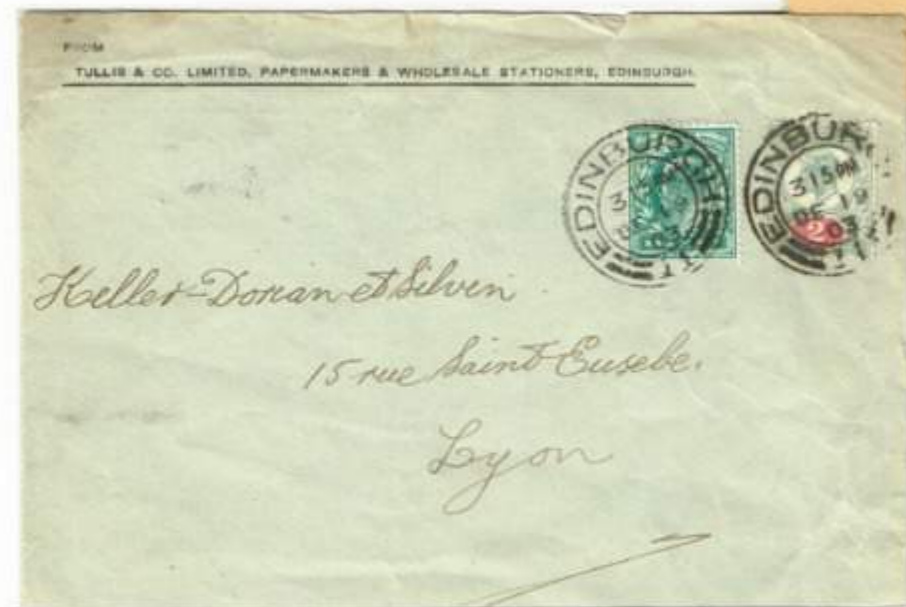 FROM
TULLIS & CO. LIMITED, PAPERMAKERS & WHOLESALE STATIONERS, EDINBURGH.
EDINBURGH
3 15 PM
DE 19
03
EDINBURGH
3 15 PM
DE 19
03
2
Keller-Dorian et Silvin
15 rue Saint-Eusebe.
Lyon